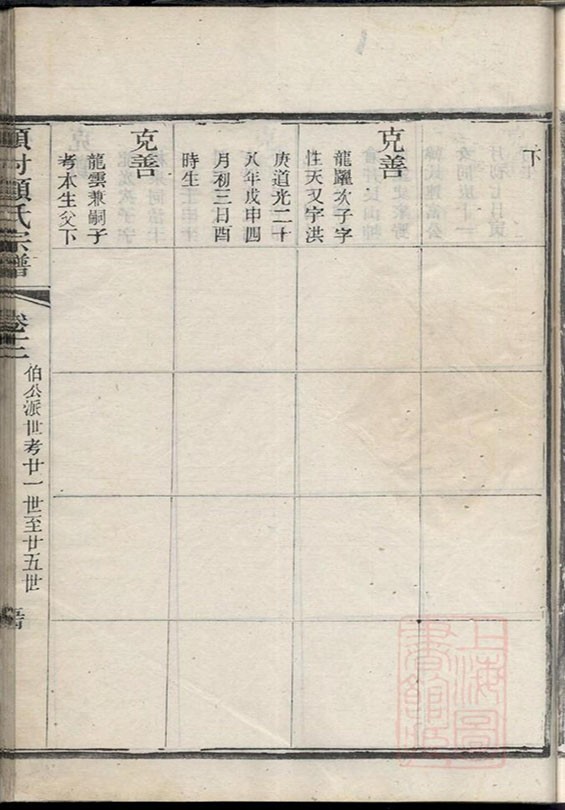 下
克善
龍躍次子字
性天又字洪
庚道光二十
八年戊申四
月初三日酉
時生
克善
龍雲兼嗣子
考本生父下
顧氏宗譜
卷十二
伯公派世考廿一世至廿五世
上海圖書館藏